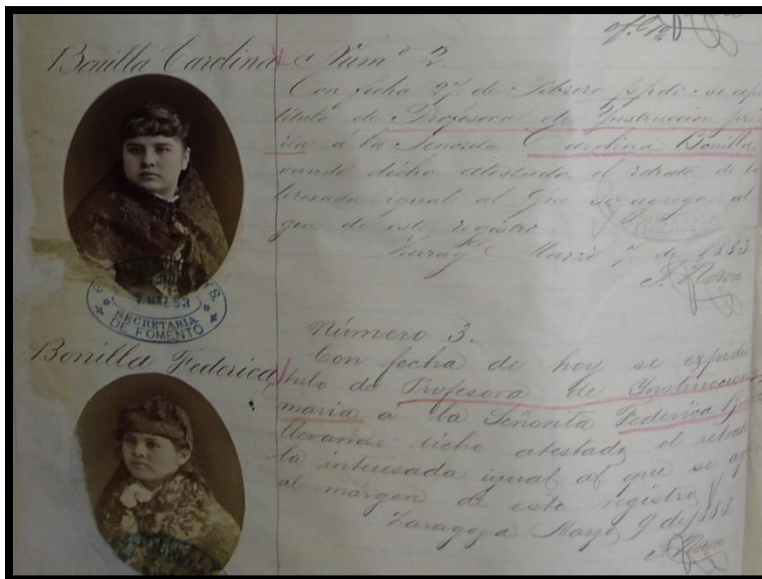 Bonilla Carolina
Núm.º 2.
Con fecha 27. de Febrero ppdo. se
título de Profesora de Instrucción pri
ria á la Señorita Carolina Bonilla
vando dicho atestado el retrato de la
teresada igual al que se agrega al
gen de este registro.
Marzo 7. de 1883.
MAR 83
SECRETARIA
DE FOMENTO
Bonilla Federica
Número 3.
Con fecha de hoy se expidió
tulo de Profesora de Instrucción
maria á la Señorita Federica
llevando dicho atestado el
la interesada igual al que se
al márgen de este registro
Zaragoza Marzo 9 de 1883.